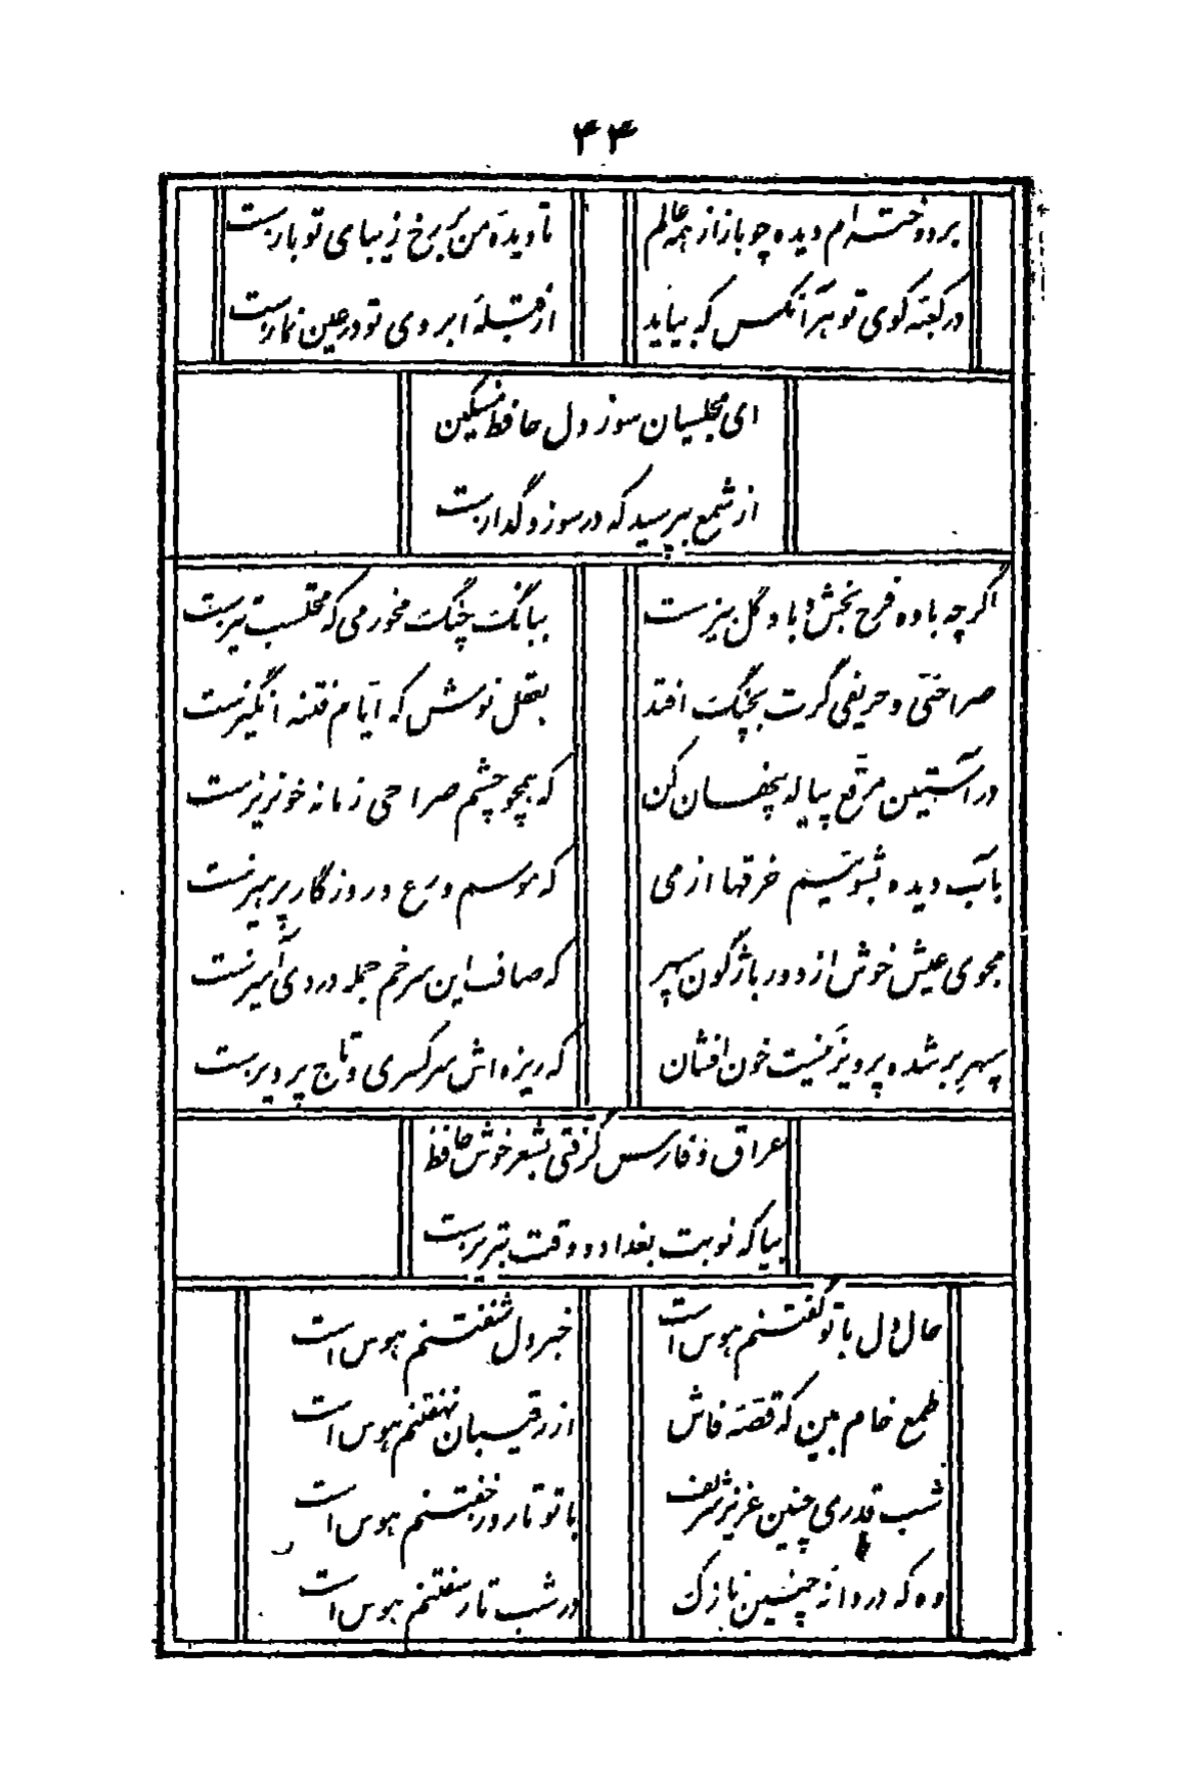 ۴۴
بردوخته‌ام دیده چو باز از همه عالم
تا دیده من بر رخ زیبای تو بازست
در کعبه کوی تو هر آنکس که بیاید
از قبله ابروی تو در عین نمازست
ای مجلسیان سوز دل حافظ مسکین
از شمع بپرسید که در سوز و گدازست
اگرچه باده فرح بخش و باد گل بیزست
ببانگ چنگ مخور می که محتسب تیزست
صراحئی و حریفی گرت بچنگ افتد
بعقل نوش که ایام فتنه انگیزست
در آستین مرقع پیاله پنهان کن
که همچو چشم صراحی زمانه خونریزست
بآب دیده بشوئیم خرقها از می
که موسم ورع و روزگار پرهیزست
مجوی عیش خوش از دور باژگون سپهر
که صاف این سر خم جمله دردی آمیزست
سپهر بر شده پرویزنیست خون افشان
که ریزه اش سر کسری و تاج پرویزست
عراق و فارس گرفتی بشعر خوش حافظ
بیا که نوبت بغداد و وقت تبریزست
حال دل با تو گفتنم هوس است
خبر دل شنفتنم هوس است
طمع خام بین که قصه فاش
از رقیبان نهفتنم هوس است
شب قدری چنین عزیز شریف
با تو تا روز خفتنم هوس است
وه که دردانه چنین نازک
در شب تار سفتنم هوس است